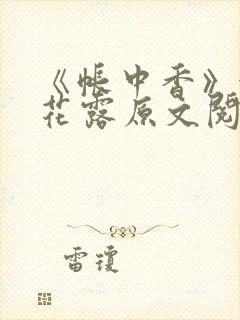 《帐中香》
花露原文阅
雷琼